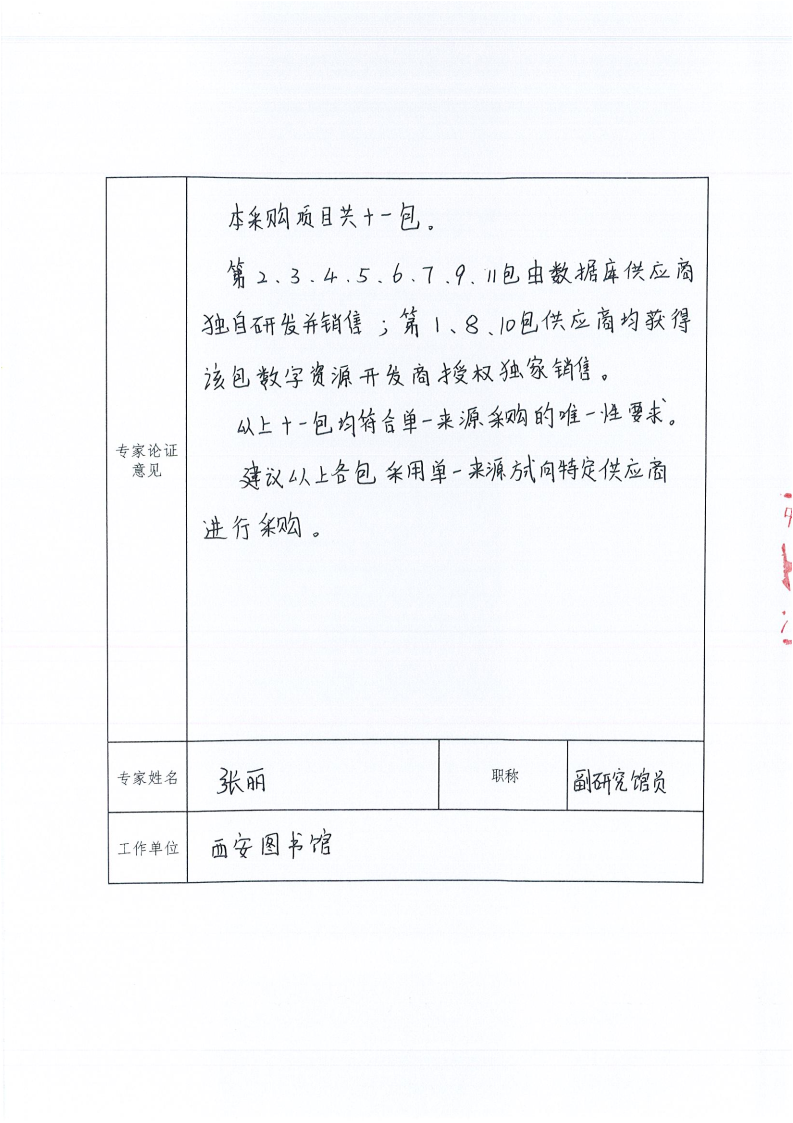 本采购项目共十一包。
第2、3、4、5、6、7、9、11包由数据库供应商
独自研发并销售；第1、8、10包供应商均获得
该包数字资源开发商授权独家销售。
以上十一包均符合单一来源采购的唯一性要求。
建议以上各包采用单一来源方式向特定供应商
进行采购。
专家论证
意见
专家姓名
张丽
职称
副研究馆员
工作单位
西安图书馆